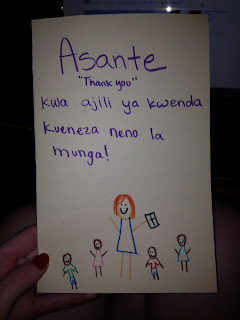 Asante
"Thank you"
kwa ajili ya kwenda
kueneza neno la
munga!